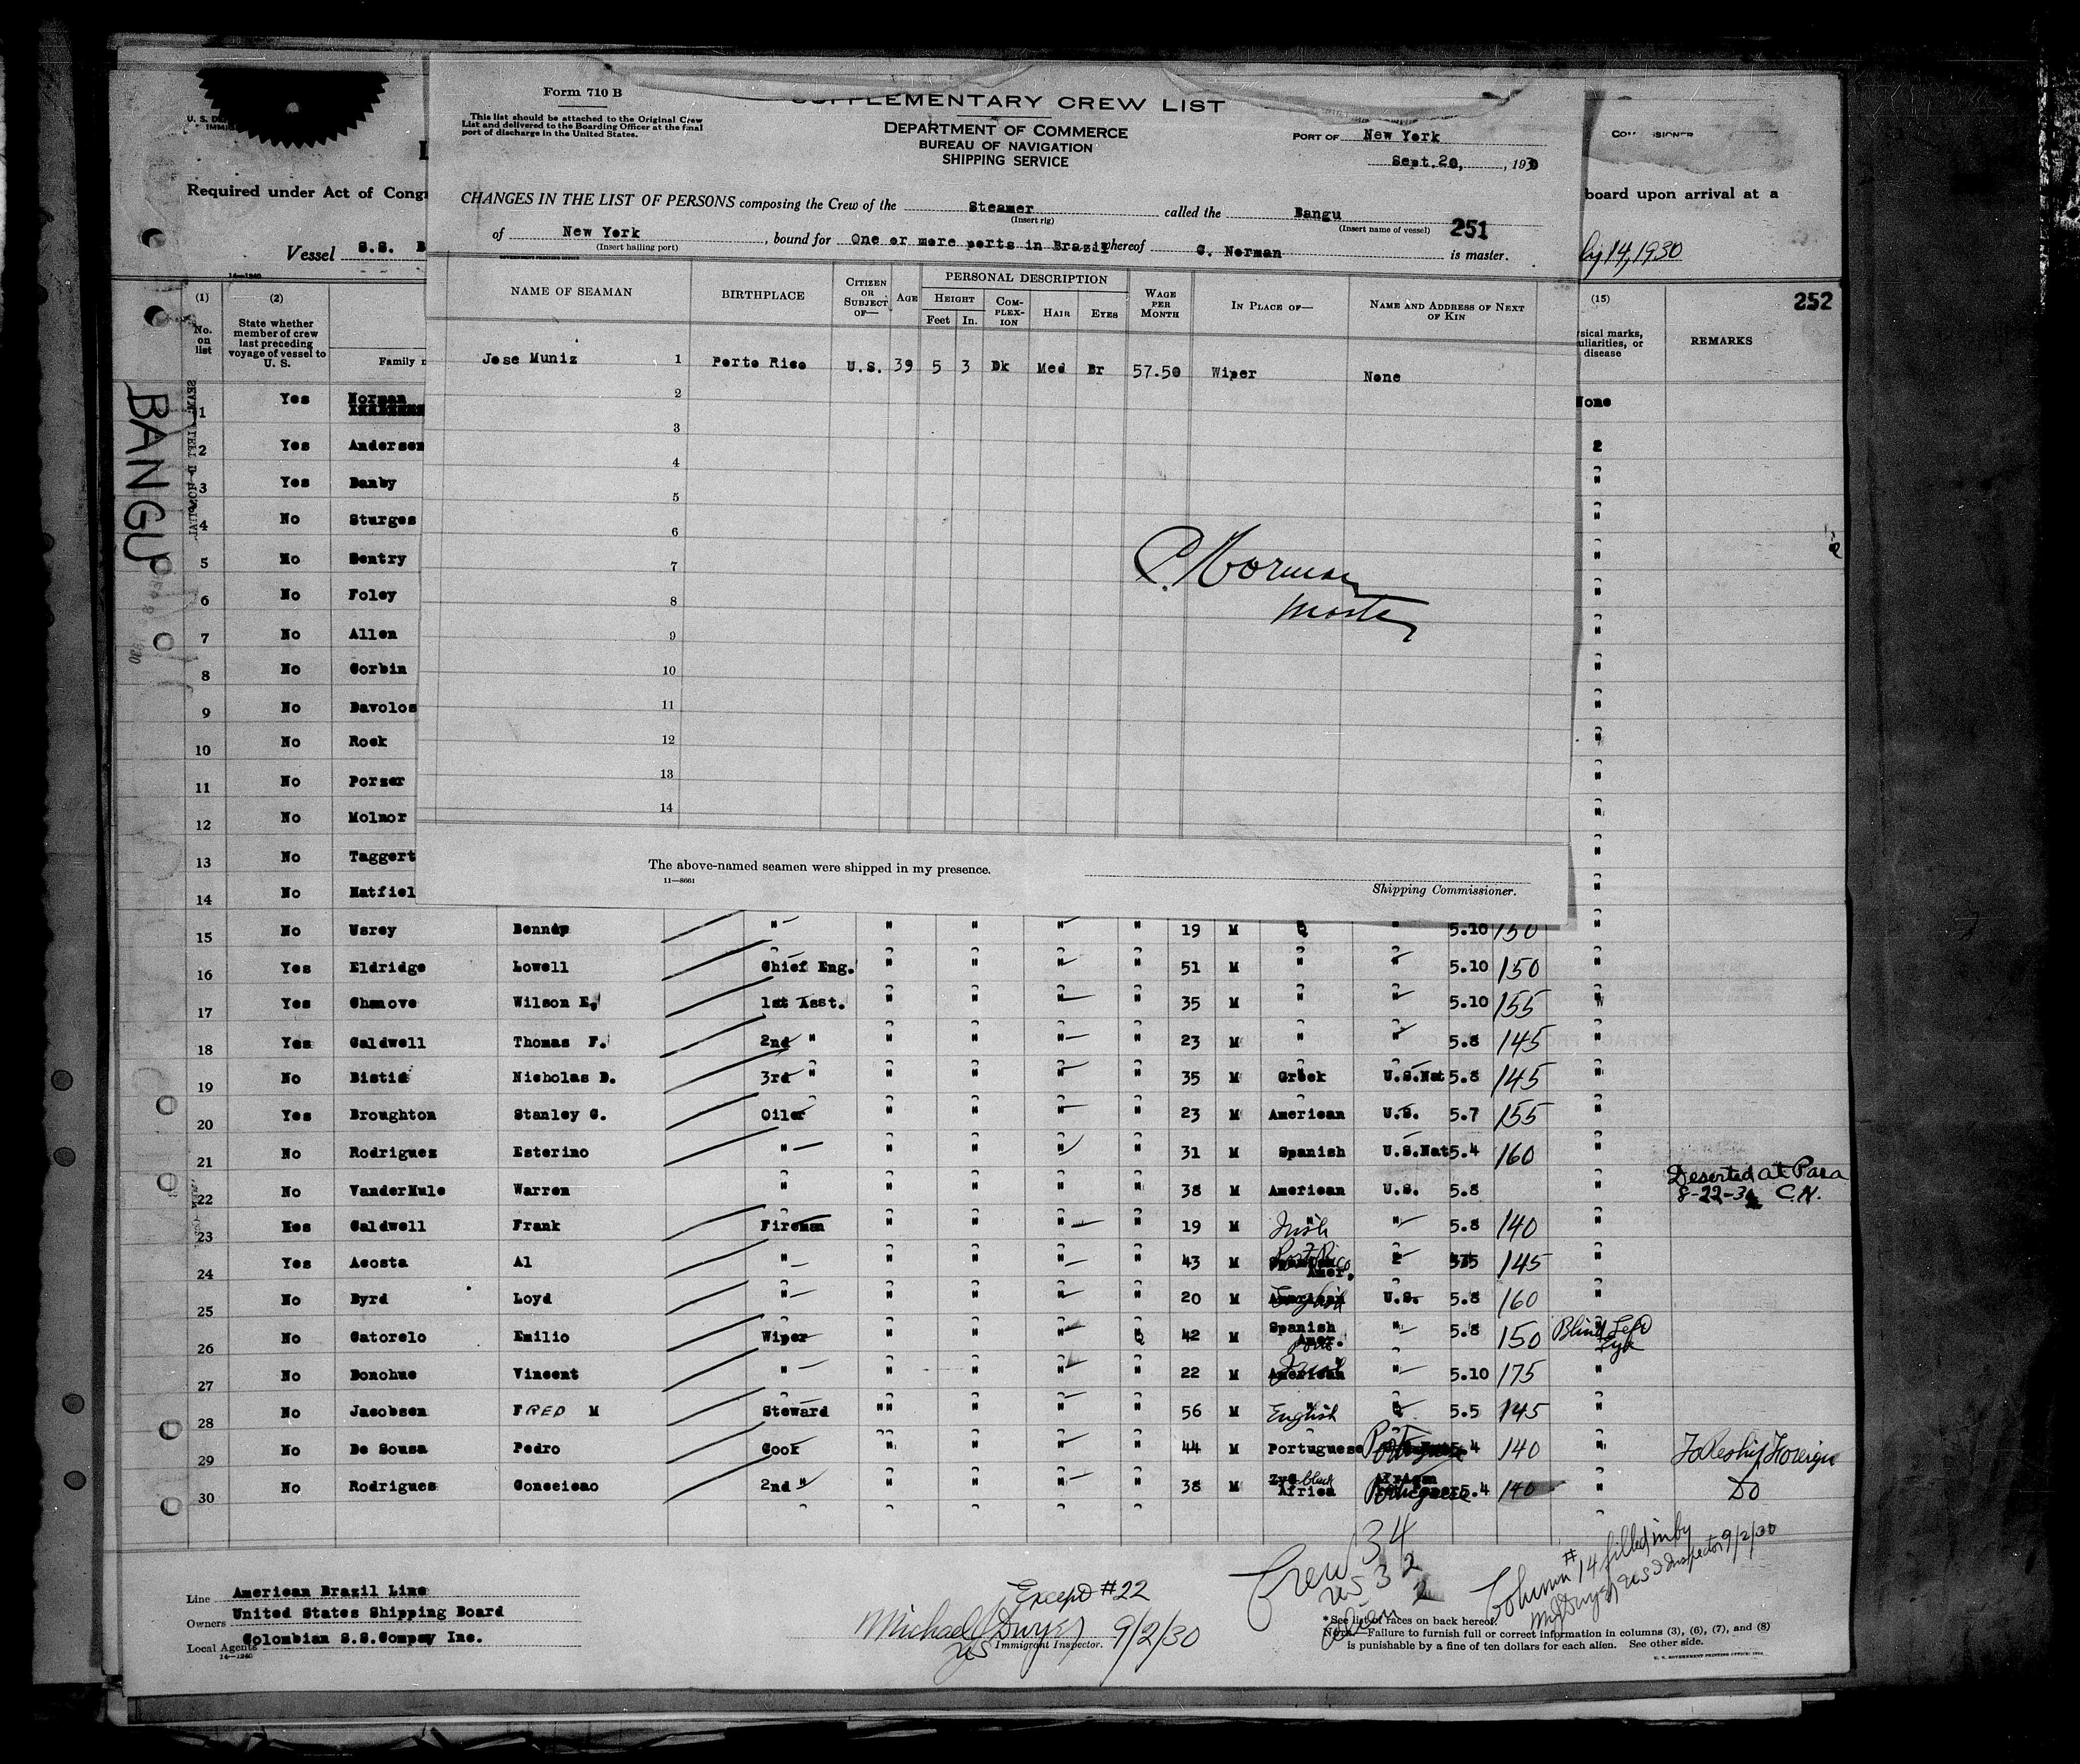 Form 710 B
This list should be attached to the Original Crew
List and delivered to the Boarding Officer at the final
port of discharge in the United States.
SUPPLEMENTARY CREW LIST
DEPARTMENT OF COMMERCE
BUREAU OF NAVIGATION
SHIPPING SERVICE
PORT OF New York
Sept. 20, , 1930
CHANGES IN THE LIST OF PERSONS composing the Crew of the Steamer called the Bangu 251
(Insert rig) (Insert name of vessel)
of New York , bound for One or more ports in Brazil whereof C. Norman is master.
(Insert hailing port)
NAME OF SEAMAN BIRTHPLACE CITIZEN OR SUBJECT OF— AGE PERSONAL DESCRIPTION HEIGHT Feet In. COMPLEXION HAIR EYES WAGE PER MONTH IN PLACE OF— NAME AND ADDRESS OF NEXT OF KIN
Jose Muniz 1 Porto Rico U.S. 39 5 3 Dk Med Br 57.50 Wiper None
2
3
4
5
6
7
8
9
10
11
12
13
14
C. Norman
Master
The above-named seamen were shipped in my presence.
11—8661
Shipping Commissioner.
Required under Act of Cong
board upon arrival at a
Vessel S.S. B
ly 14, 1930
14—1240
252
BANGU
(1) (2) (15)
No. on list
State whether member of crew last preceding voyage of vessel to U. S.
Family n
REMARKS
1 Yes Norman None
2 Yes Andersen 2
3 Yes Danby "
4 No Sturges "
5 No Sentry "
6 No Foley "
7 No Allen "
8 No Corbin "
9 No Davolos "
10 No Rock "
11 No Porzer "
12 No Molnor "
13 No Taggert "
14 No Hatfiel "
15 No Usrey " " " " " 19 M " 5.10 150 "
16 Yes Eldridge Lowell Chief Eng. " " " " 51 M " " 5.10 150 "
17 Yes Chanove Wilson E. 1st Asst. " " " " 35 M " " 5.10 155 "
18 Yes Caldwell Thomas F. 2nd " " " " " 23 M " " 5.8 145 "
19 No Bistis Nicholas D. 3rd " " " " " 35 M Greek U.S.Nat 5.8 145 "
20 Yes Broughton Stanley G. Oiler " " " " 23 M American U.S. 5.7 155 "
21 No Rodriguez Esterino " " " " " 31 M Spanish U.S.Nat 5.4 160 "
22 No VanderMule Warren " " " " " 38 M American U.S. 5.8 " Deserted at Para
8-22-30 C.N.
23 Caldwell Frank Fireman " " " " 19 M Irish " 5.8 140 "
24 Yes Acosta Al " " " " " 43 M 145 "
25 No Byrd Loyd " " " " " 20 M English U.S. 5.8 160 "
26 No Catorelo Emilio Wiper " " " " 42 M Spanish Amer. " 5.8 150 Blind Left Eye
27 No Donohue Vincent " " " " " 22 M American " 5.10 175 "
28 No Jacobsen FRED M Steward " " " " " 56 M English 5.5 145 "
29 No De Sousa Pedro Cook " " " " 44 M Portuguese 140 " To Reship Foreign
30 No Rodrigues Conceicao 2nd " " " " " 38 M black Africa Portuguese 5.4 140 " Do
Line American Brazil Line
Owners United States Shipping Board
Local Agents Colombian S.S.Compay Inc.
14—1240
Except #22
Michael J Dwyer 9/2/30
US Immigrant Inspector.
Crew 34
US 32
Alien 2
Column #14 filled in by
MJ Dwyer US I Inspector 9/2/30
*See list of races on back hereof.
NOTE—Failure to furnish full or correct information in columns (3), (6), (7), and (8)
is punishable by a fine of ten dollars for each alien. See other side.
U. S. GOVERNMENT PRINTING OFFICE